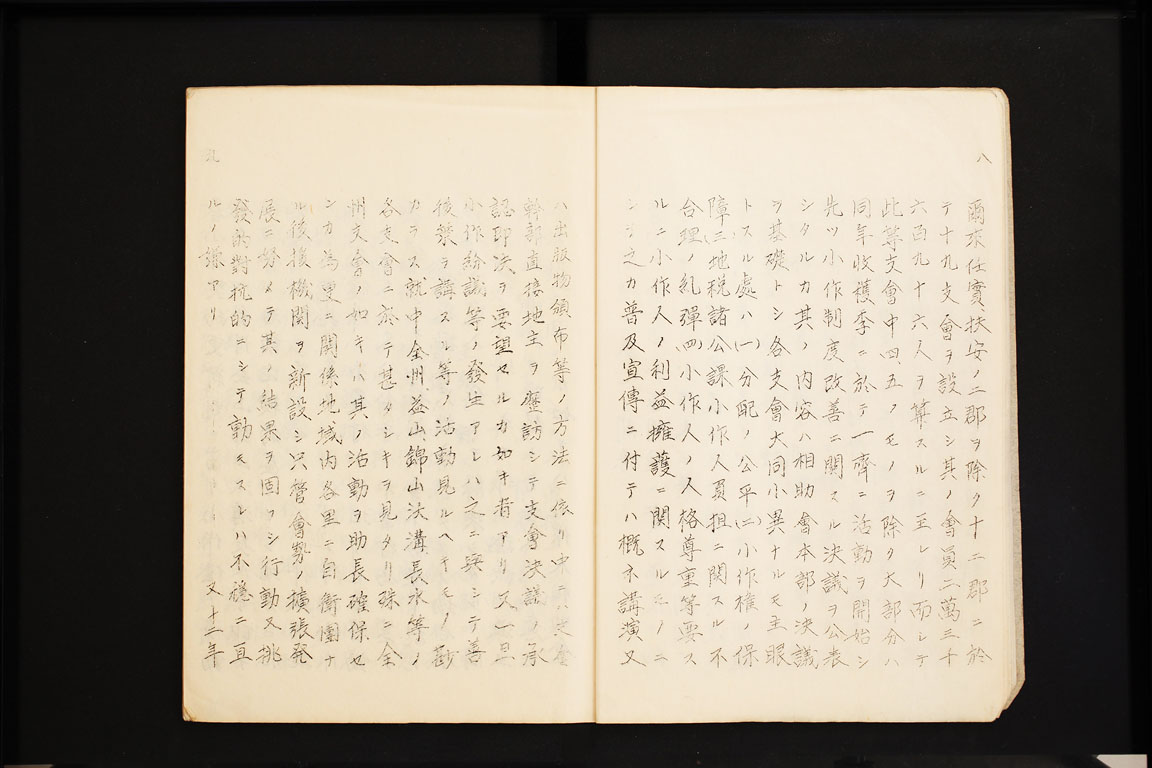 八
爾來任實、扶安ノ二郡ヲ除ク十二郡ニ於
テ十九支會ヲ設立シ其ノ會員二萬三千
六百九十六人ヲ算スルニ至レリ而シテ
此等支會中四、五ノモノヲ除ク大部分ハ
同年收穫季ニ於テ一齊ニ活動ヲ開始シ
先ツ小作制度改善ニ關スル決議ヲ公表
シタルカ其ノ内容ハ相助會本部ノ決議
ヲ基礎トシ各支會大同小異ナルモ主眼
トスル處ハ(一)分配ノ公平(二)小作権ノ保
障(三)地税諸公課小作人負担ニ関スル不
合理ノ糺彈(四)小作人ノ人格尊重等要ス
ルニ小作人ノ利益擁護ニ関スルモノニ
シテ之カ普及宣傳ニ付テハ概ネ講演又
九
ハ出版物頒布等ノ方法ニ依リ中ニハ支會
幹部直接地主ヲ歷訪シテ支會決議ノ承
認印決ヲ要望セルカ如キ者アリ又一旦
小作紛議等ノ發生アレハ之ニ應シテ善
後策ヲ講スル等ノ活動見ルヘキモノ尠
カラス就中全州、益山、錦山、沃溝、長水等ノ
各支會ニ於テ甚タシキヲ見タリ殊ニ全
州支會ノ如キハ其ノ活動ヲ助長確保セ
ンカ為里ニ関係地域内各里ニ自衛團ナ
ル後援機関ヲ新設シ只管會勢ノ擴張発
展ニ努メテ其ノ結果ヲ固フシ行動又挑
發的對抗的ニシテ動モスレハ不穏ニ亘
ルノ嫌アリ 又十二年